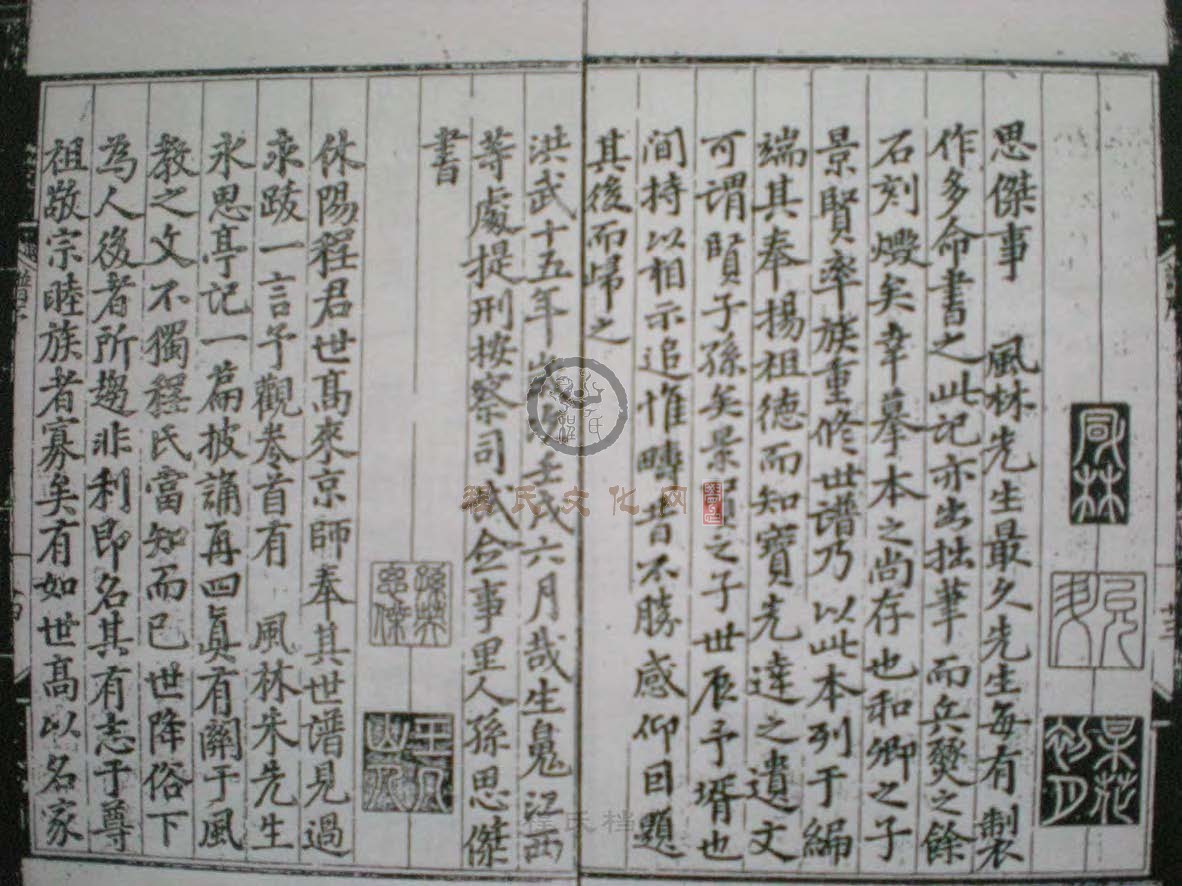 思傑事 風林先生最久先生每有製
作多命書之此記亦出拙筆而兵燹之餘
石刻燬矣幸摹本之尚存也和卿之子
景賢率族重修世譜乃以此本列于編
端其奉揚祖德而知寶先達之遺文
可謂賢子孫矣景賢之子世辰予壻也
間持以相示追惟疇昔不勝感仰因題
其後而歸之
洪武十五年壬戌六月哉生魄江西
等處提刑按察司試僉事里人孫思傑
書
休陽程君世高來京師奉其世譜見過
求跋一言予觀卷首有 風林朱先生
永思亭記一篇披誦再四真有關于風
教之文不獨程氏當知而已世降俗下
為人後者所趨非利即名其有志于尊
祖敬宗睦族者寡矣有如世高以名家
程氏文化网